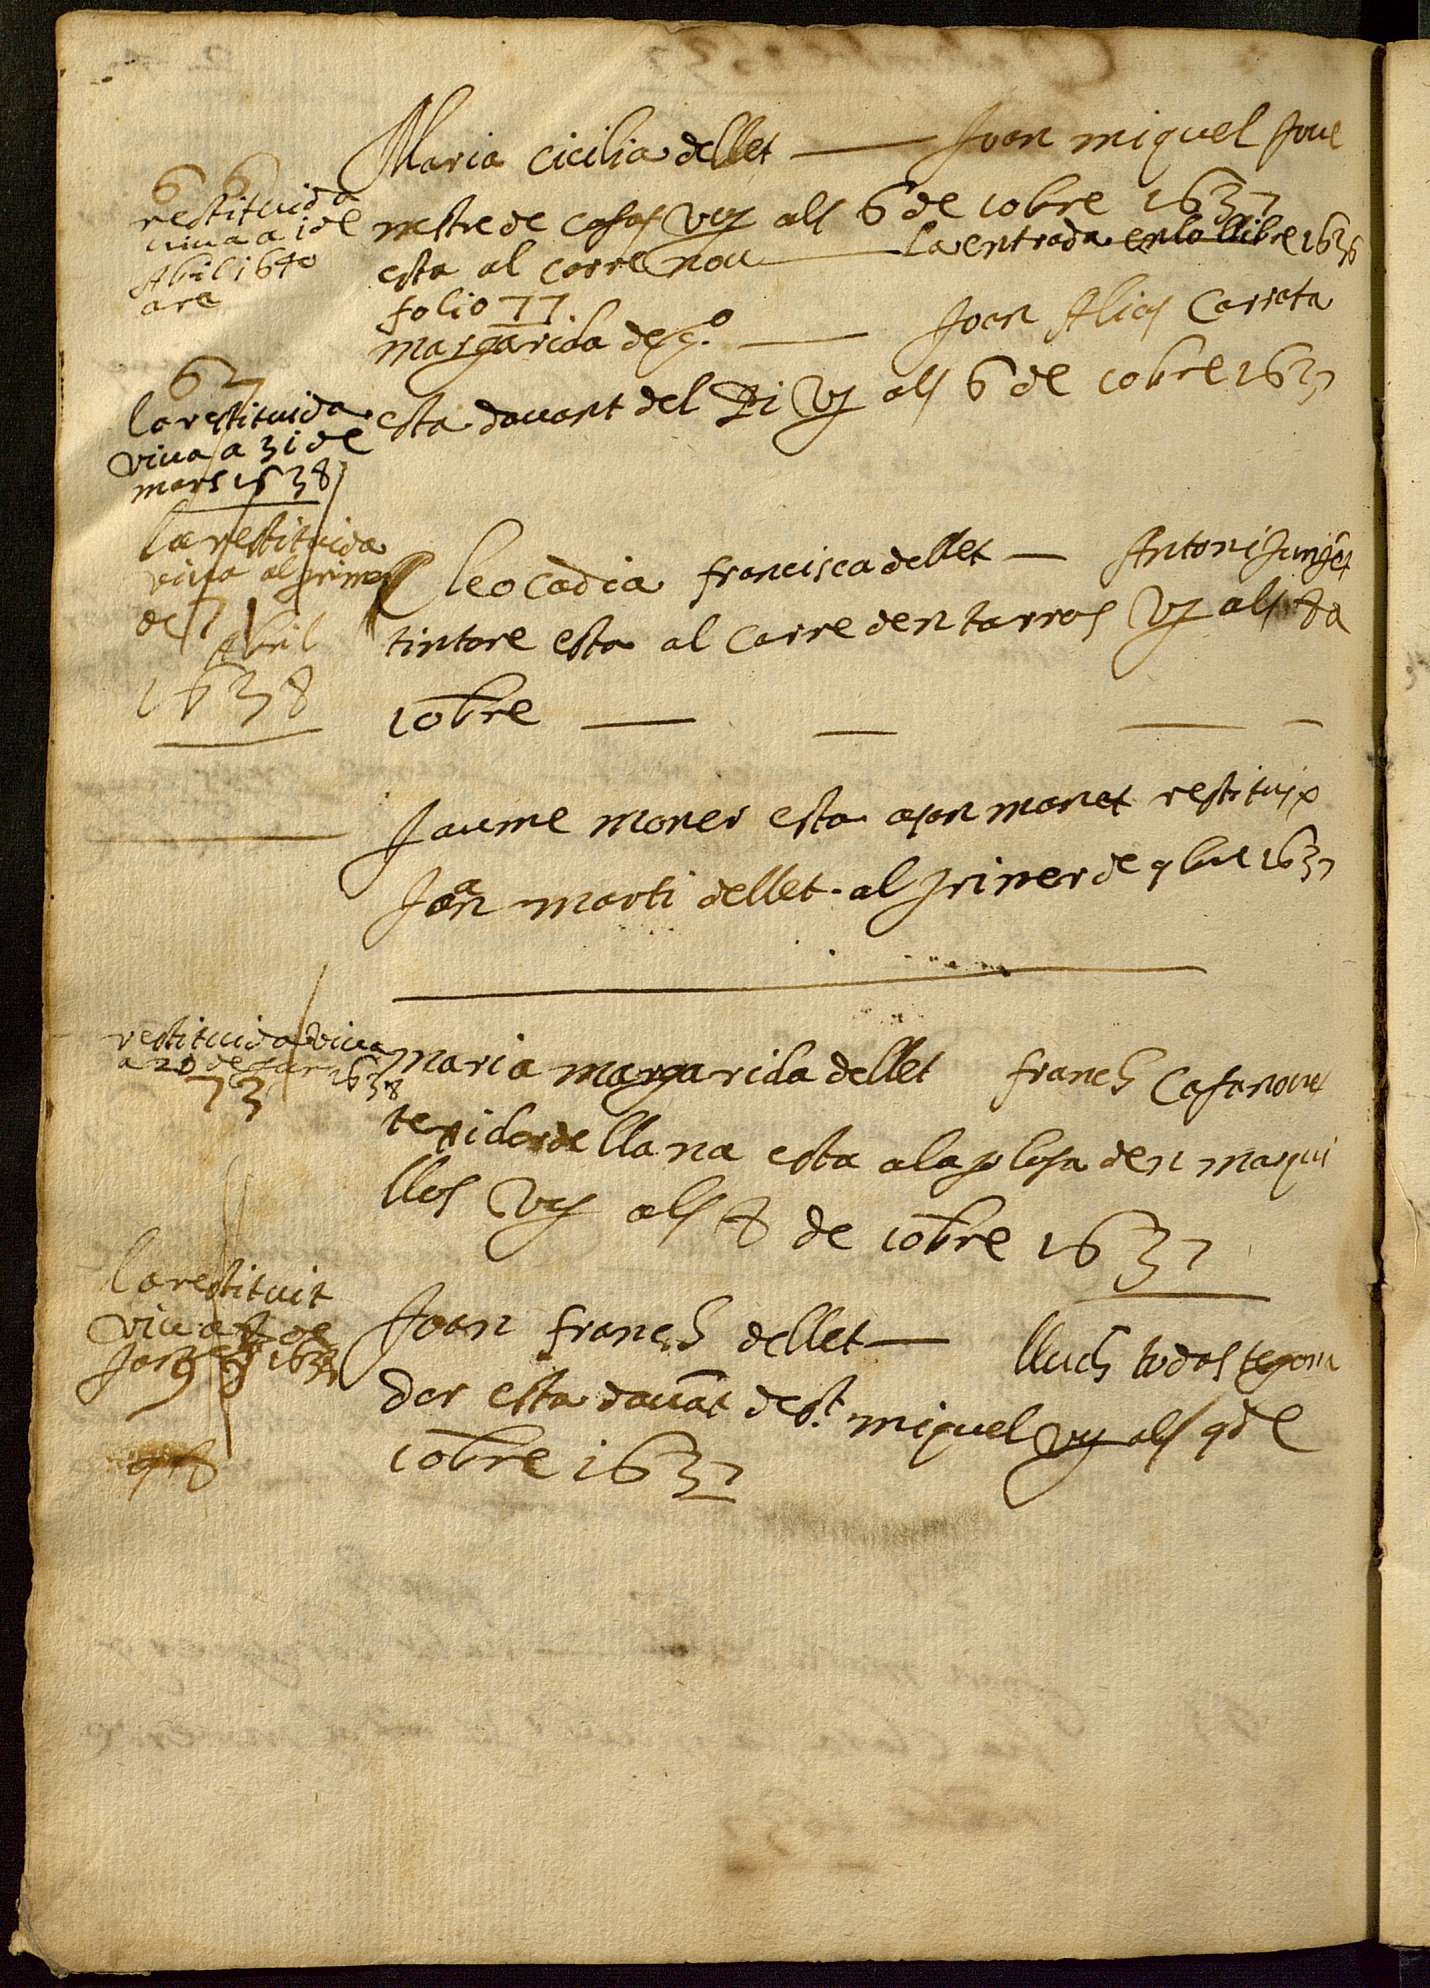 66
restituida
viua a 1 de
Abil 1640
ara
Maria Cicilia de llet — Joan miquel Joue
mestre de casas vuy als 6 de 10bre 1637
esta al carre nou — la entrada en lo llibre 1636
folio 77
67
la restituida
viua a 31 de
mars 1638
margarida desg.º — Joan Alias Carrata
esta dauant del Pi vy als 6 de 10bre 1637
la restituida
viua al primer
de
Abril
1638
leocadia francisca de llet — Antoni
tintore esta al carre den tarros vy als 8 a
10bre
Jaume moner esta a son manet restituix
Joan marti de llet al primer de 9bre 1637
restituida viua
a 20 de 1638
73
maria margarida de llet franch Casanoue
texidor de llana esta a la plasa den marqui
llos vy als 8 de 10bre 1637
la restituit
viu a de
1637
Joan franch de llet — lluch
dor esta dauāt de st. miquel vy als 9 de
10bre 1637